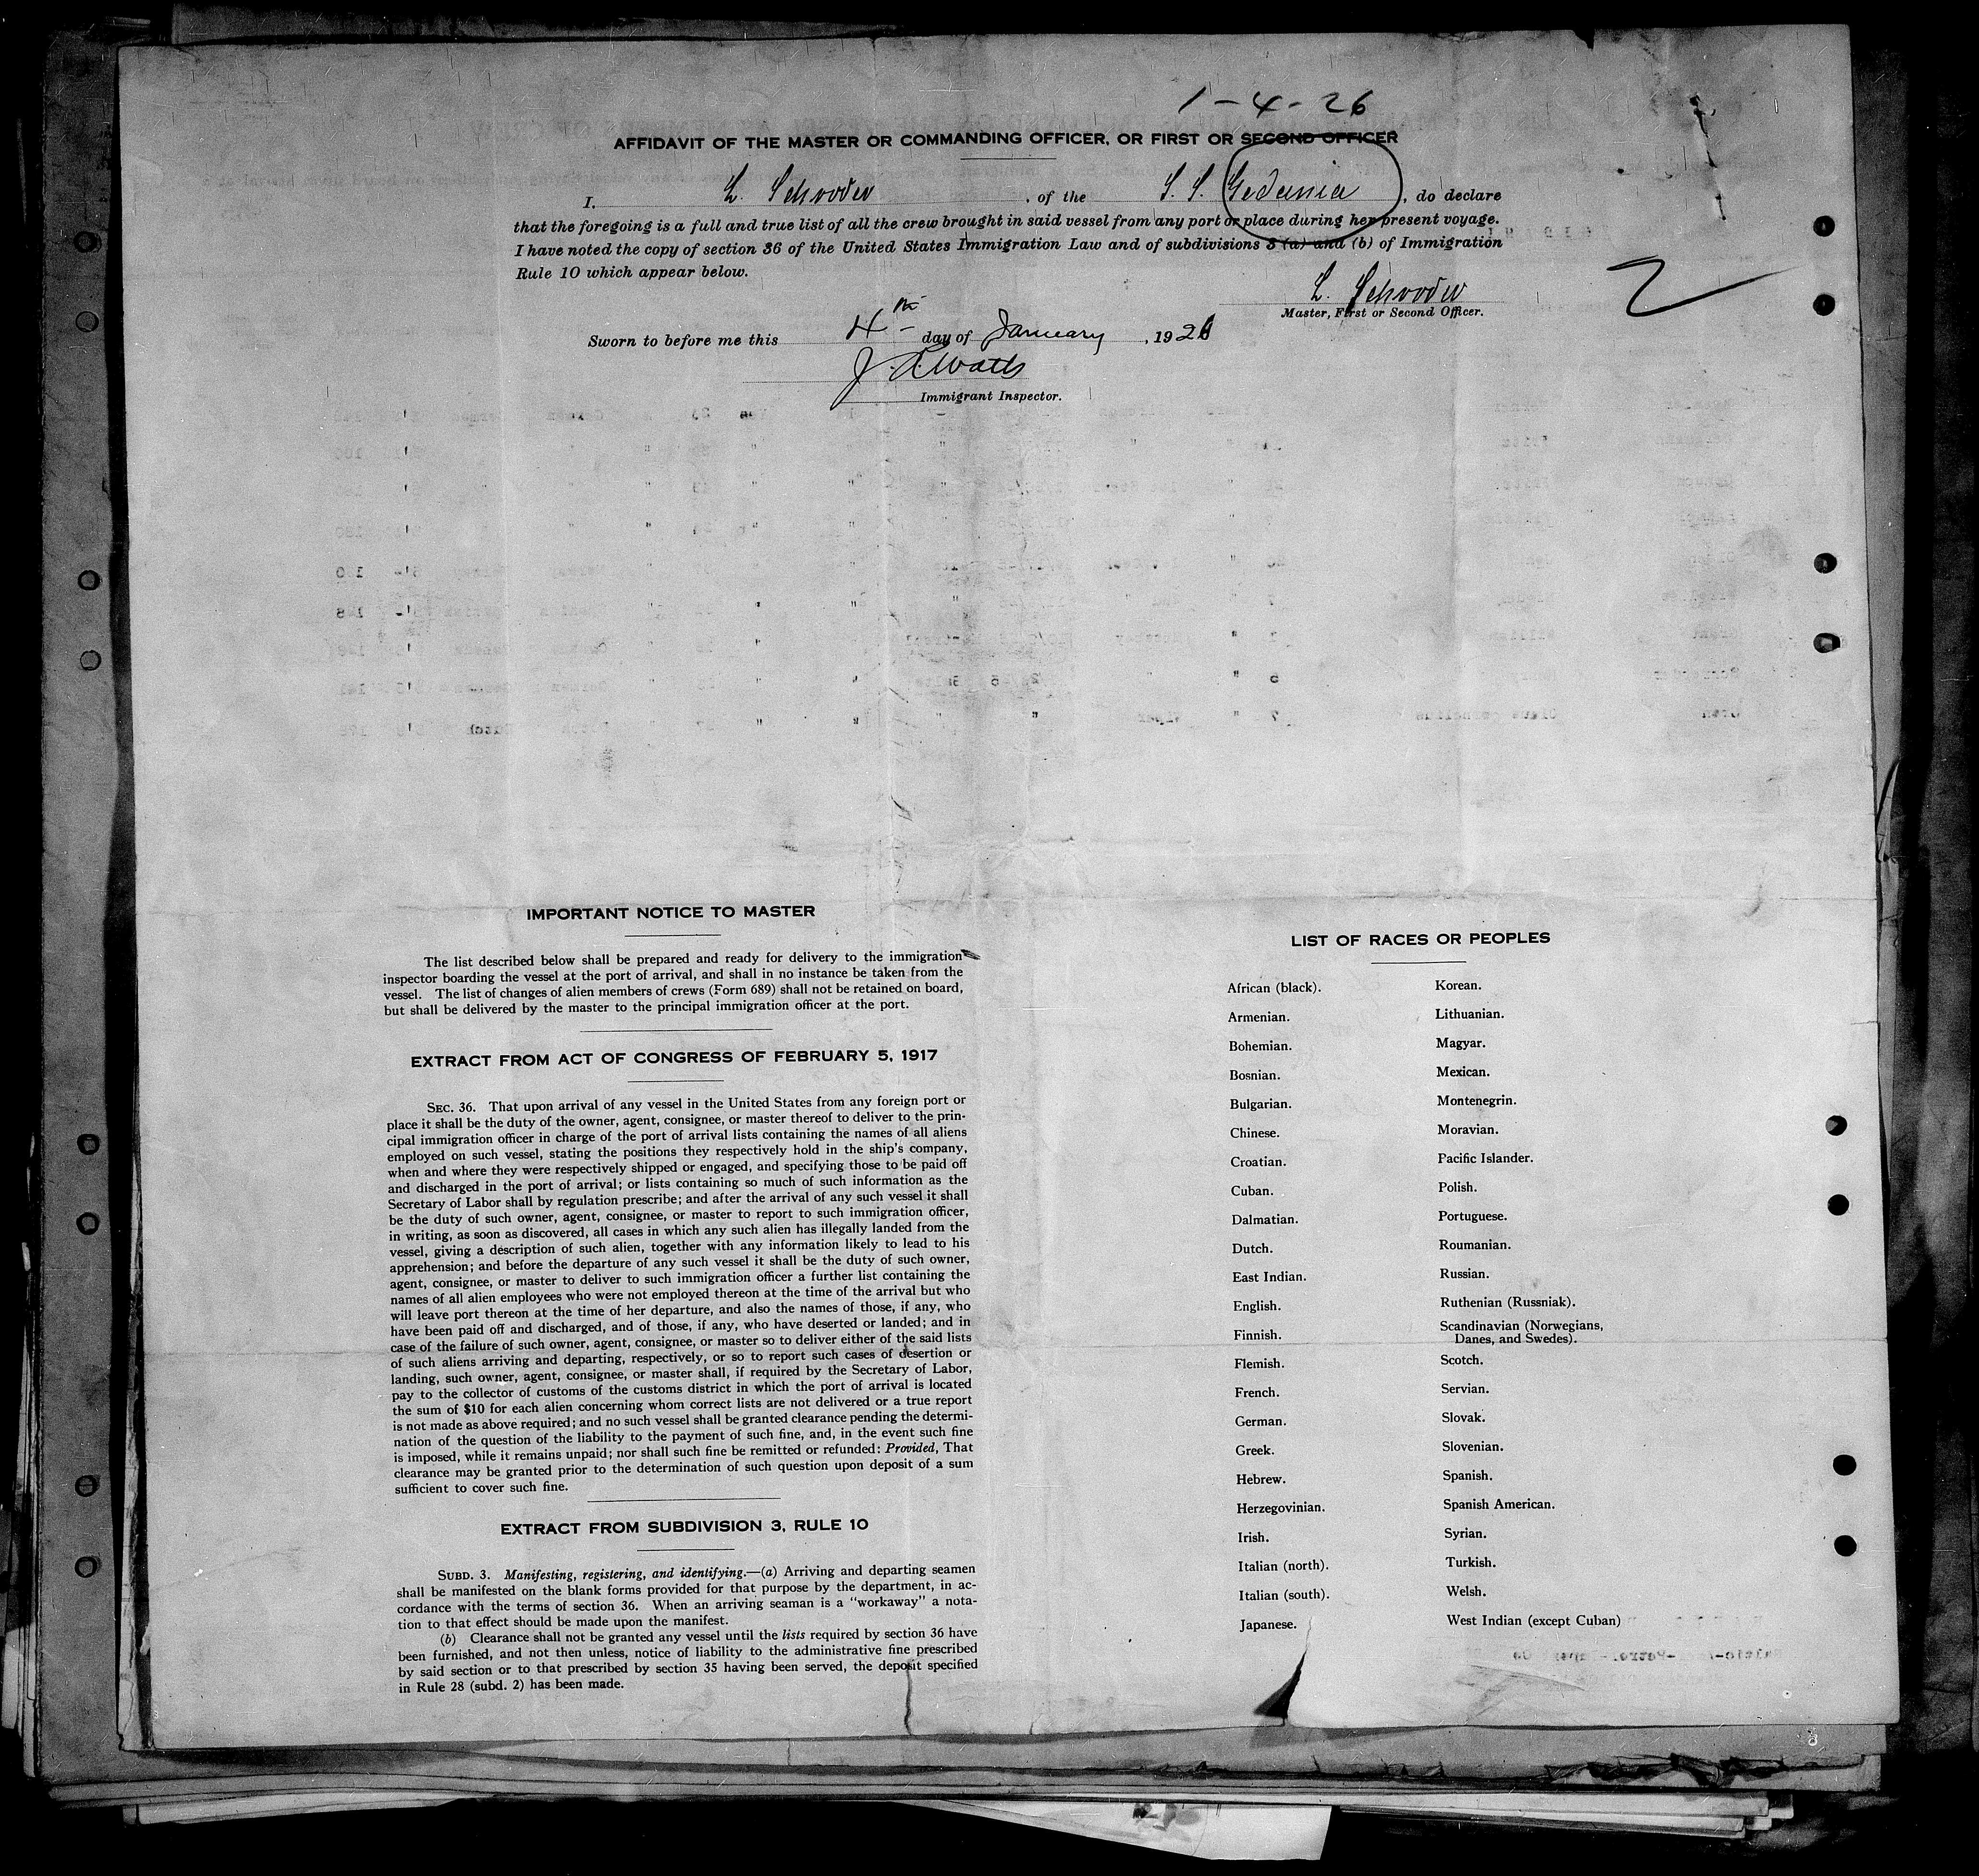 1-4-26
AFFIDAVIT OF THE MASTER OR COMMANDING OFFICER, OR FIRST OR SECOND OFFICER
I, L. Schroder, of the S. S. Gedania, do declare
that the foregoing is a full and true list of all the crew brought in said vessel from any port or place during her present voyage.
I have noted the copy of section 36 of the United States Immigration Law and of subdivisions 3 (a) and (b) of Immigration
Rule 10 which appear below.
L. Schroder
Master, First or Second Officer.
2
Sworn to before me this 4th day of January, 1926
Immigrant Inspector.
IMPORTANT NOTICE TO MASTER
The list described below shall be prepared and ready for delivery to the immigration
inspector boarding the vessel at the port of arrival, and shall in no instance be taken from the
vessel. The list of changes of alien members of crews (Form 689) shall not be retained on board,
but shall be delivered by the master to the principal immigration officer at the port.
EXTRACT FROM ACT OF CONGRESS OF FEBRUARY 5, 1917
SEC. 36. That upon arrival of any vessel in the United States from any foreign port or
place it shall be the duty of the owner, agent, consignee, or master thereof to deliver to the prin-
cipal immigration officer in charge of the port of arrival lists containing the names of all aliens
employed on such vessel, stating the positions they respectively hold in the ship's company,
when and where they were respectively shipped or engaged, and specifying those to be paid off
and discharged in the port of arrival; or lists containing so much of such information as the
Secretary of Labor shall by regulation prescribe; and after the arrival of any such vessel it shall
be the duty of such owner, agent, consignee, or master to report to such immigration officer,
in writing, as soon as discovered, all cases in which any such alien has illegally landed from the
vessel, giving a description of such alien, together with any information likely to lead to his
apprehension; and before the departure of any such vessel it shall be the duty of such owner,
agent, consignee, or master to deliver to such immigration officer a further list containing the
names of all alien employees who were not employed thereon at the time of the arrival but who
will leave port thereon at the time of her departure, and also the names of those, if any, who
have been paid off and discharged, and of those, if any, who have deserted or landed; and in
case of the failure of such owner, agent, consignee, or master so to deliver either of the said lists
of such aliens arriving and departing, respectively, or so to report such cases of desertion or
landing, such owner, agent, consignee, or master shall, if required by the Secretary of Labor,
pay to the collector of customs of the customs district in which the port of arrival is located
the sum of $10 for each alien concerning whom correct lists are not delivered or a true report
is not made as above required; and no such vessel shall be granted clearance pending the determi-
nation of the question of the liability to the payment of such fine, and, in the event such fine
is imposed, while it remains unpaid; nor shall such fine be remitted or refunded: Provided, That
clearance may be granted prior to the determination of such question upon deposit of a sum
sufficient to cover such fine.
EXTRACT FROM SUBDIVISION 3, RULE 10
SUBD. 3. Manifesting, registering, and identifying.—(a) Arriving and departing seamen
shall be manifested on the blank forms provided for that purpose by the department, in ac-
cordance with the terms of section 36. When an arriving seaman is a "workaway" a nota-
tion to that effect should be made upon the manifest.
(b) Clearance shall not be granted any vessel until the lists required by section 36 have
been furnished, and not then unless, notice of liability to the administrative fine prescribed
by said section or to that prescribed by section 35 having been served, the deposit specified
in Rule 28 (subd. 2) has been made.
LIST OF RACES OR PEOPLES
African (black).
Armenian.
Bohemian.
Bosnian.
Bulgarian.
Chinese.
Croatian.
Cuban.
Dalmatian.
Dutch.
East Indian.
English.
Finnish.
Flemish.
French.
German.
Greek.
Hebrew.
Herzegovinian.
Irish.
Italian (north).
Italian (south).
Japanese.
Korean.
Lithuanian.
Magyar.
Mexican.
Montenegrin.
Moravian.
Pacific Islander.
Polish.
Portuguese.
Roumanian.
Russian.
Ruthenian (Russniak).
Scandinavian (Norwegians,
Danes, and Swedes).
Scotch.
Servian.
Slovak.
Slovenian.
Spanish.
Spanish American.
Syrian.
Turkish.
Welsh.
West Indian (except Cuban)